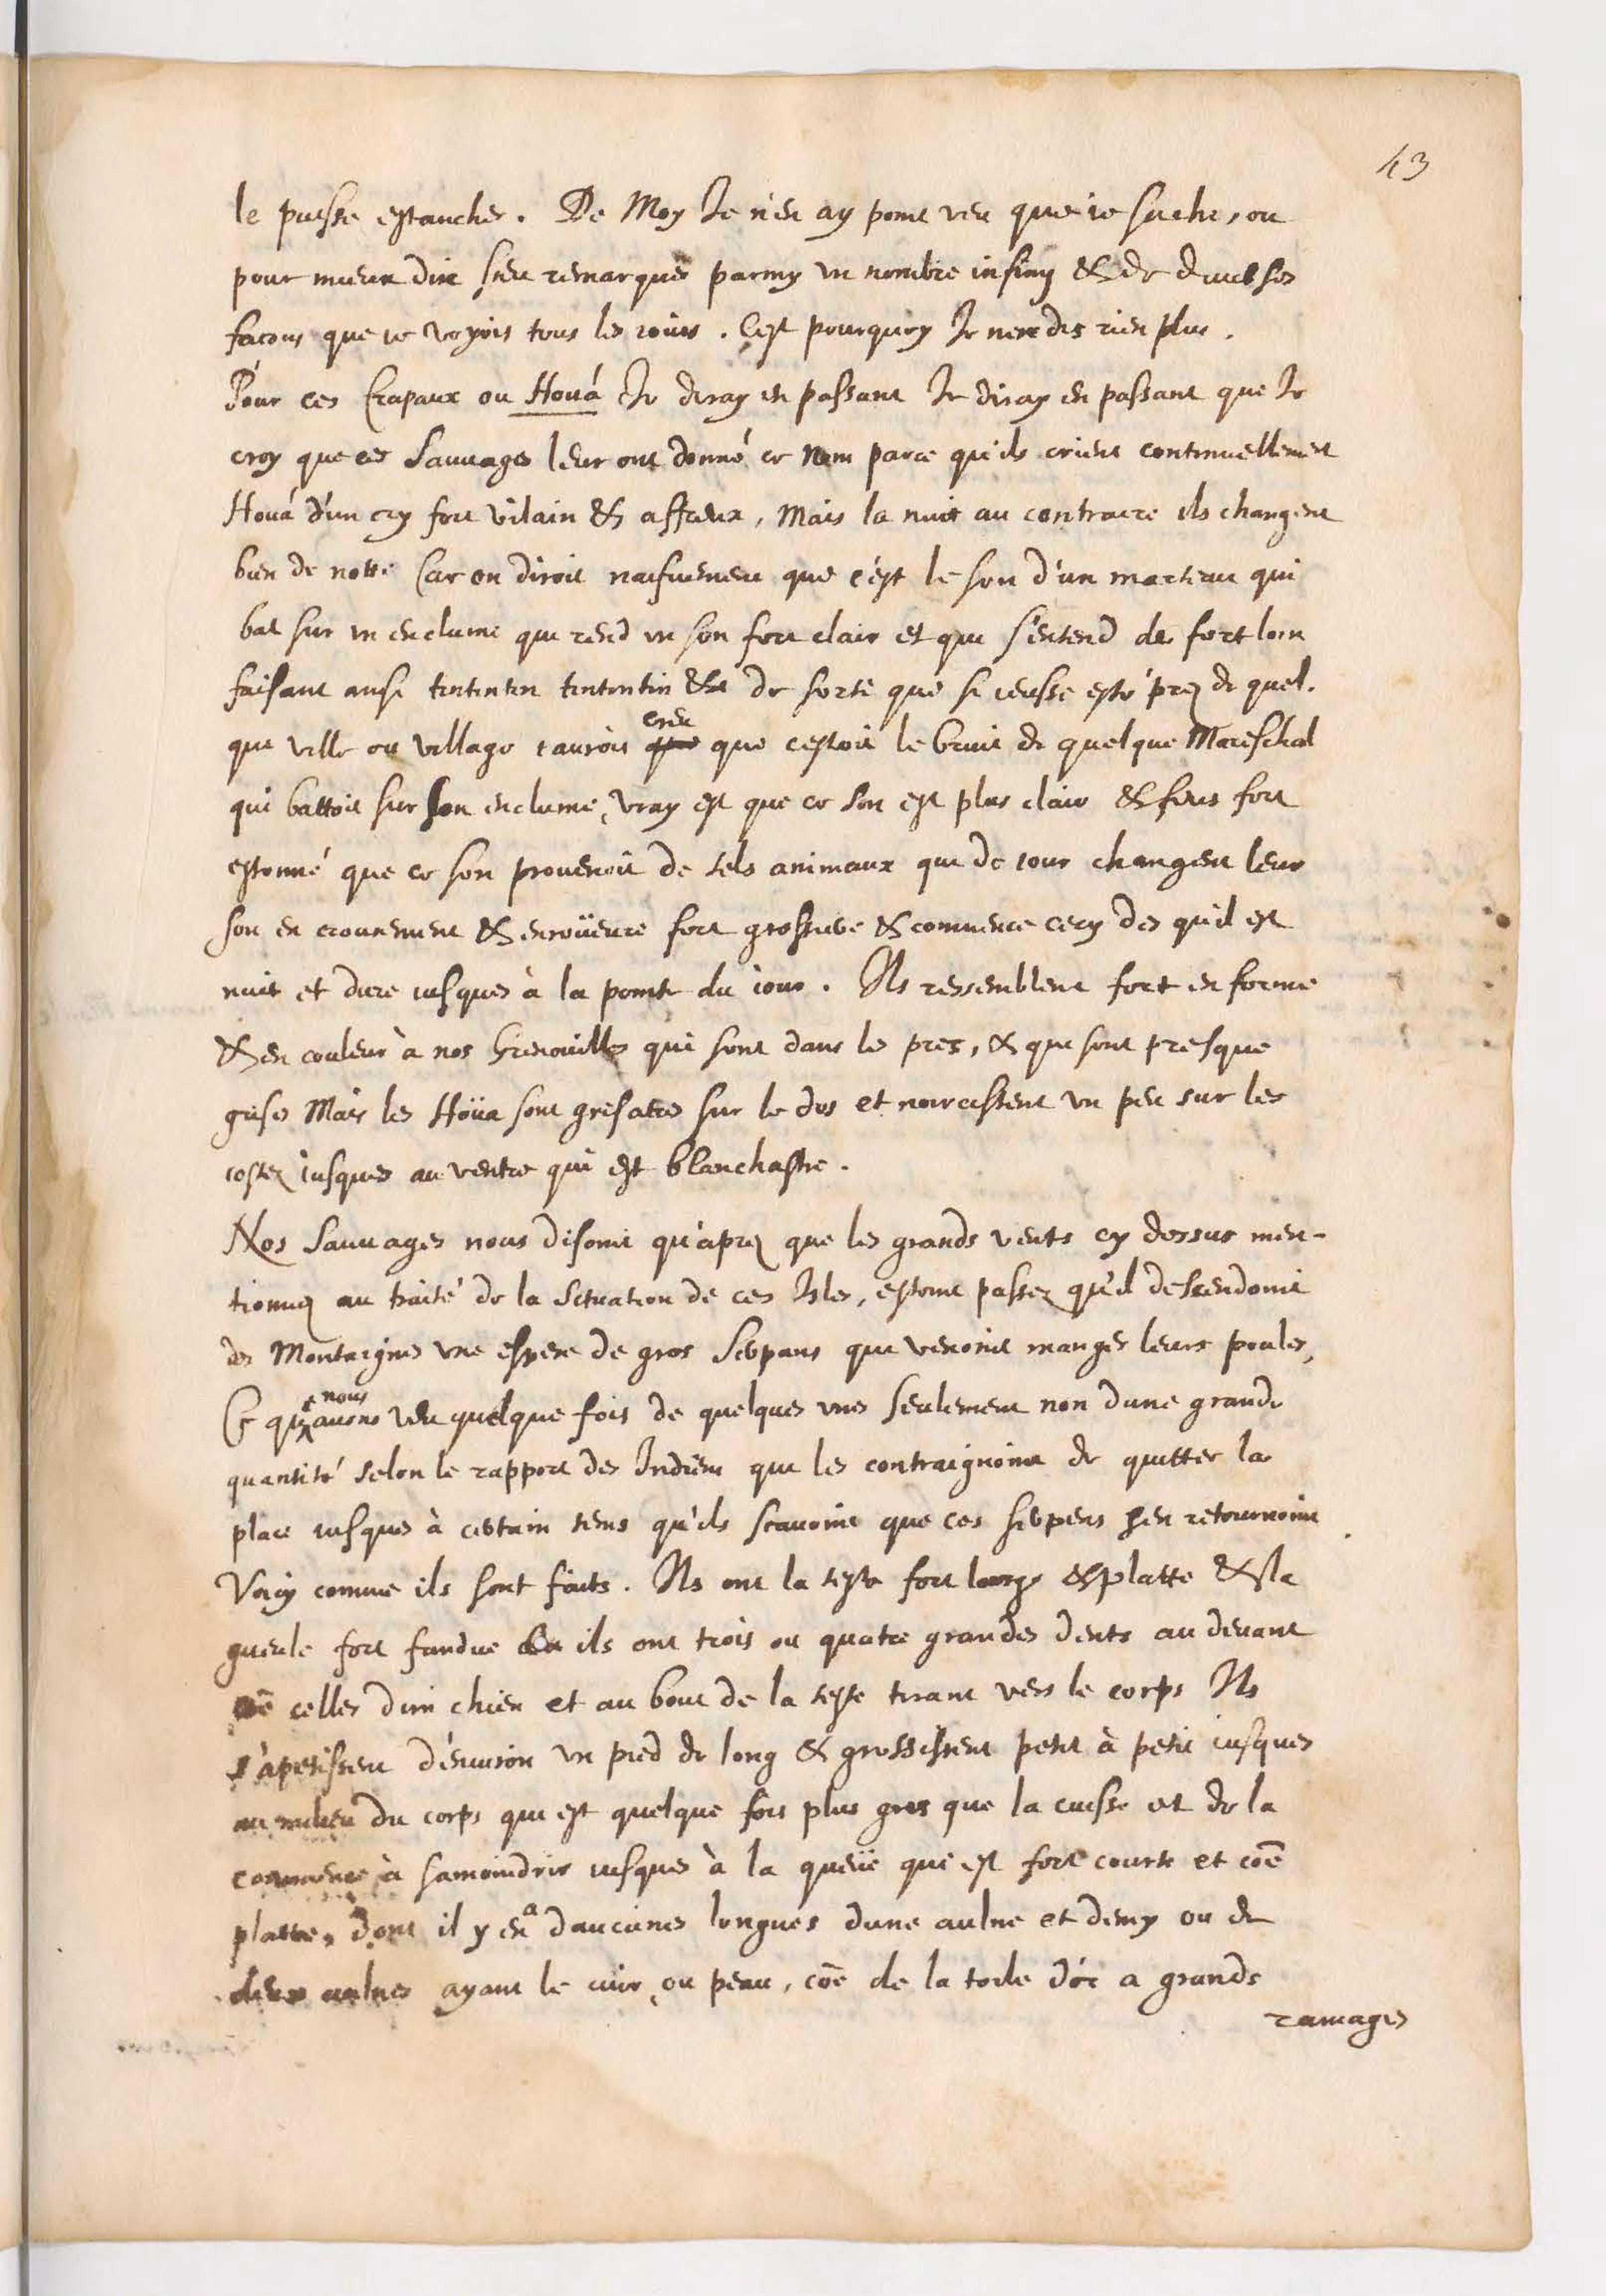 43
le puisse estancher. De Moy Je n'en ay point veu que ie sache, ou
pour mieux dire n'en remarquer parmy un nombre infiny & de diverses
facons que ie voyois tous les iours. C'est pourquoy Je n'en dis rien plus.
Pour ces Crapaux ou Houá Je diray en passant Je diray en passant que Je
croy que ces Sauuages leur ont donné ce nom parce qu'ils crient continuellement
Houá d'un cry fort vilain & affreux, Mais la nuit au contraire ils changent
bien de notte Car on diroit naifuement que c'est le son d'un marteau qui
bat sur un enclume qui rend un son fort clair et qui s'entend de fort loin
faisant ainsi tintintin tintintin &c de sorte que si ieusse esté prez de quel-
que ville ou village iaurois creu que cestoit le bruit de quelque Mareschal
qui battoit sur son enclume, vray est que ce son est plus clair & fus fort
estonné que ce son prouenoit de tels animaux qui de iour changent leur
son en & enroüeure fort grossiere & commence cecy des qu'il est
nuit et dure iusques à la pointe du iour. Ils ressemblent fort en forme
& en couleur à nos Grenouilles qui sont dans les prez, & qui sont presque
grises Mais les Hoüa sont grisatres sur le dos et noircissent un peu sur les
costez iusques au ventre qui est blanchastre.
Nos Sauuages nous disoint qu'aprez que les grands vents cy dessus men-
tionnez au traité de la Situation de ces Isles, estoint passez qu'il descendoint
des Montaignes une espece de gros Serpans qui venoint manger leurs poules,
Ce que nous auons veu quelque fois de quelques unes seulement non dune grande
quantité selon le rapport des Indiens qui les contraignoint de quitter la
place iusques à certain tems qu'ils scauoint que ces serpens s'en retournoint
Voicy comme ils sont faits. Ils ont la teste fort large & platte & la
gueule fort fandue ils ont trois ou quatre grandes dents au deuant
cõe celles d'un chien et au bout de la teste tirant vers le corps Ils
s'apetissent d'enuiron un pied de long & grossissent petit à petit iusques
au milieu du corps qui est quelque fois plus gros que la cuisse et de la
commence à samoindrir iusques à la queüe qui est fort courte et cõe
platte, dont il y en a daucunes longues dune aulne et demy ou de
deux aulnes ayant le cuir, ou peau, cõe de la toile d'or a grands
ramages